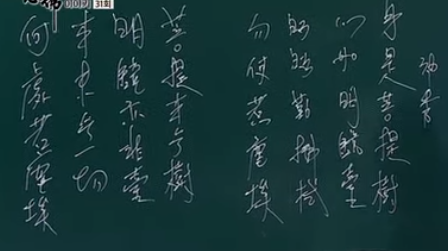 이야기 31회
神秀
身是菩提樹
心如明鏡臺
時時勤拂拭
勿使惹塵埃
菩提本無樹
明鏡亦非臺
本來無一物
何處惹塵埃